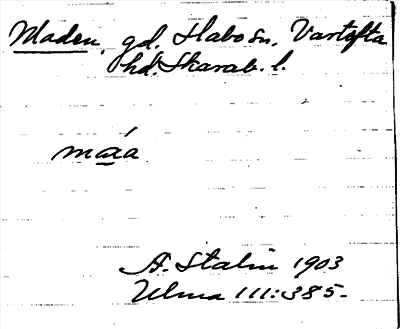 Maden, gd. Habo sn. Vartofta
hd. Skarab. l.
máa
A. Stalin 1903
Ulma 111:385.